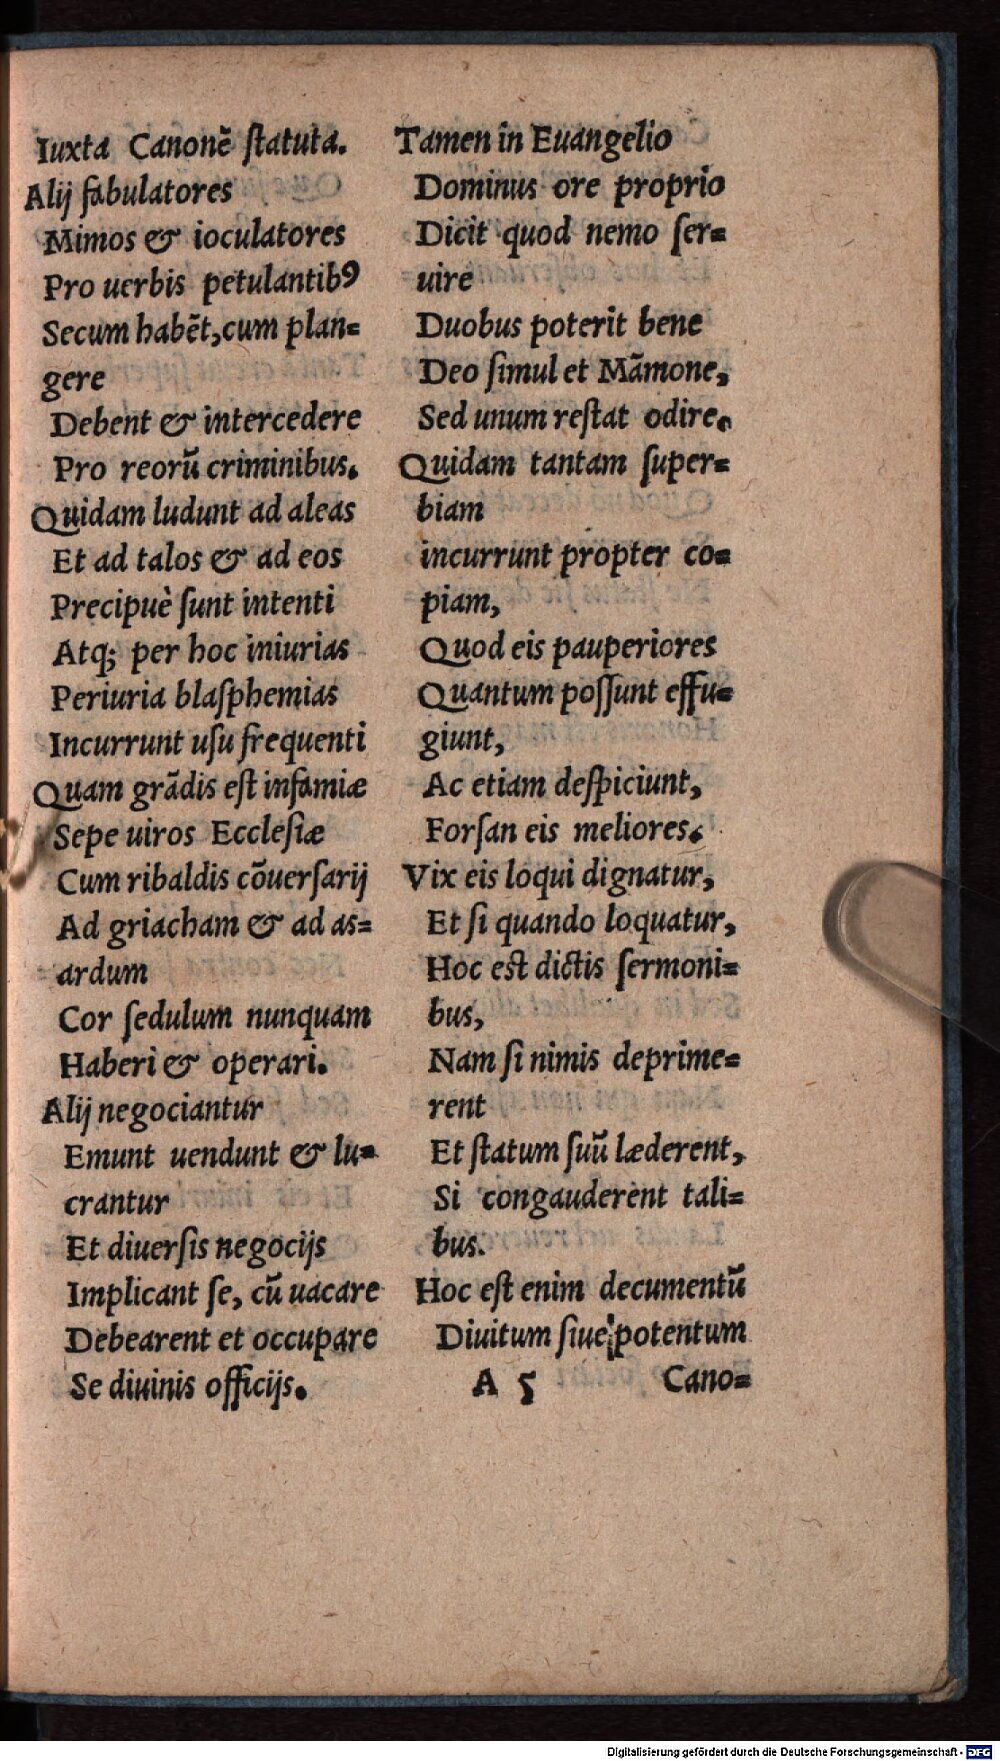 Iuxta Canonē ſtatuta.
Alij fabulatores
Mimos & ioculatores
Pro uerbis petulantibꝰ
Secum habēt, cum plan=
gere
Debent & intercedere
Pro reorū criminibus.
Quidam ludunt ad aleas
Et ad talos & ad eos
Precipuè ſunt intenti
Atq; per hoc iniurias
Periuria blaſphemias
Incurrunt uſu frequenti
Quam grādis eſt infamiæ
Sepe uiros Eccleſiæ
Cum ribaldis cōuerſarij
Ad griacham & ad as=
ardum
Cor ſedulum nunquam
Haberi & operari.
Alij negociantur
Emunt uendunt & lu=
crantur
Et diuerſis negocijs
Implicant ſe, cū uacare
Debearent et occupare
Se diuinis officijs.
Tamen in Euangelio
Dominus ore proprio
Dicit quod nemo ſer=
uire
Duobus poterit bene
Deo ſimul et Māmone,
Sed unum reſtat odire.
Quidam tantam ſuper=
biam
incurrunt propter co=
piam,
Quod eis pauperiores
Quantum poſſunt effu=
giunt,
Ac etiam deſpiciunt,
Forſan eis meliores.
Vix eis loqui dignatur,
Et ſi quando loquatur,
Hoc est dictis ſermoni=
bus,
Nam ſi nimis deprime=
rent
Et ſtatum ſuū læderent,
Si congauderent tali=
bus.
Hoc eſt enim decumentū
Diuitum ſiue potentum
A 5 Cano=
Digitalisierung gefördert durch die Deutsche Forschungsgemeinschaft - DFG